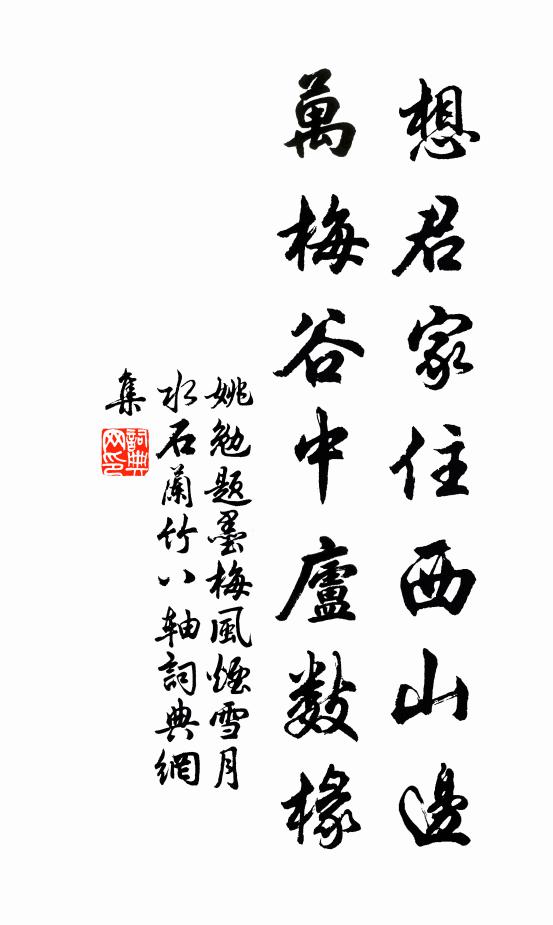 想君家住西山邊
萬梅谷中廬數椽
姚勉題墨梅風煙雪月
水石蘭竹八軸詞典網
集
詞典
网印